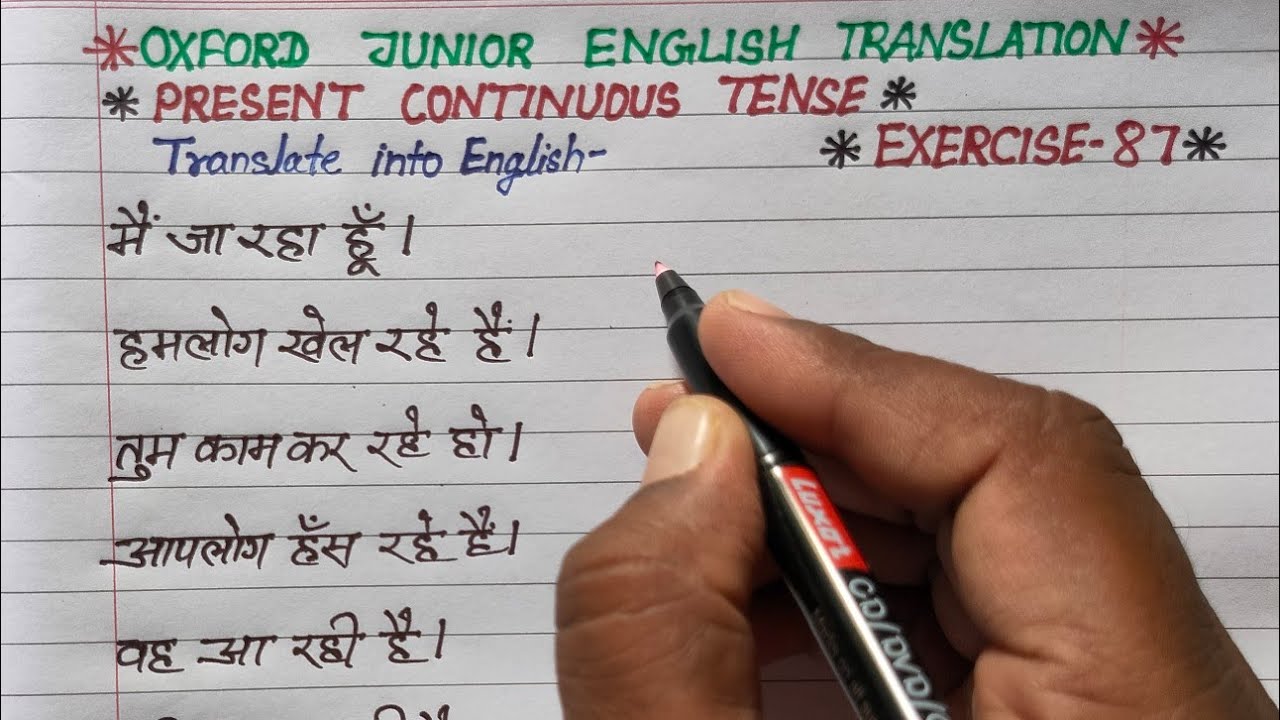 *OXFORD JUNIOR ENGLISH TRANSLATION*
* PRESENT CONTINUOUS TENSE *
Translate into English-
* EXERCISE-87*
मैं जा रहा हूँ।
हमलोग खेल रहे हैं।
तुम काम कर रहे हो।
आपलोग हँस रहे हैं।
वह आ रही है।
LUXOR
CD/DVD/